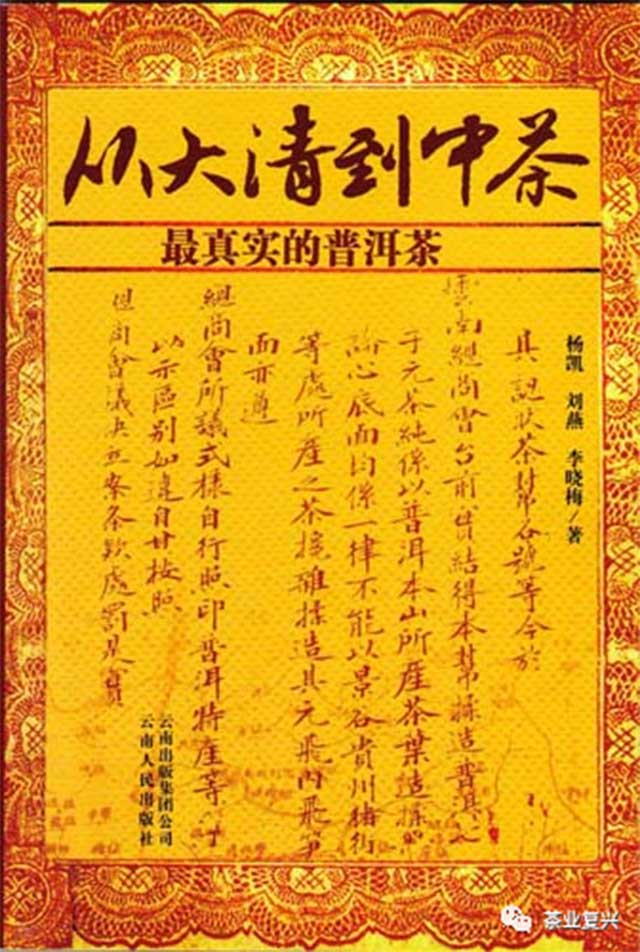 从大清到中茶
最真实的普洱茶
杨凯 刘燕 李晓梅/著
具記狀茶幫各號等今於
雲南總商會台前實結得本幫揉造普洱之
于元茶純係以普洱本山所產茶葉造揉
論心底面均係一律不能以景谷貴川猪街
等處所產之茶攙雜揉造其元飛內飛
而亦遵
總商會所議式樣自行照印普洱特產等
以示區別如違自甘按照
商會議决立案条款處罰是實
云南出版集团公司
云南人民出版社
茶业复兴